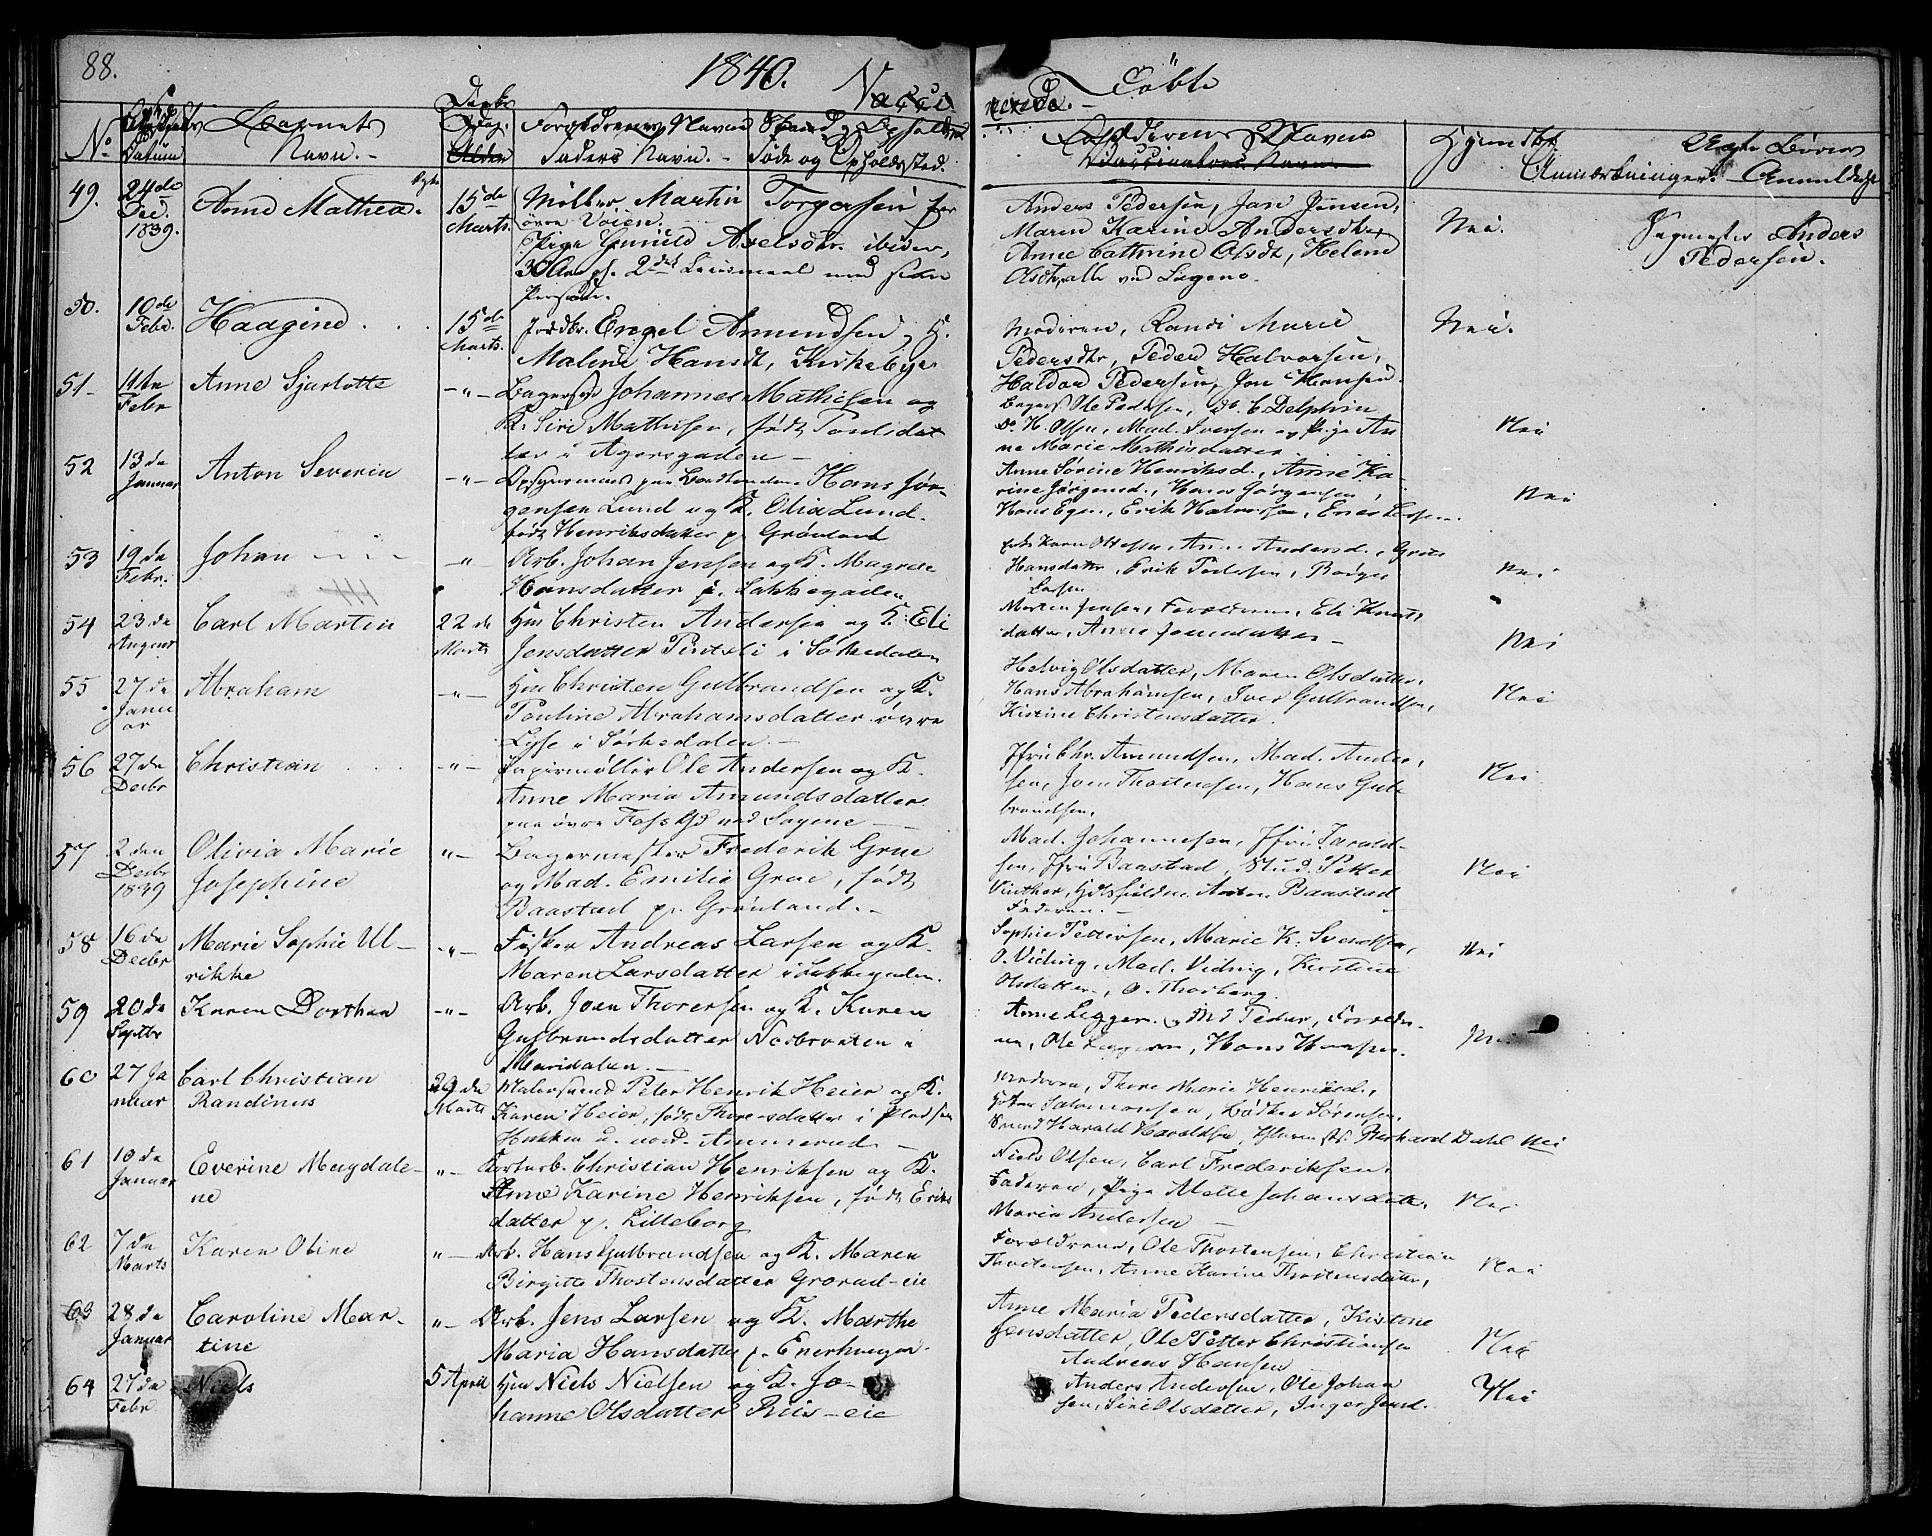 88.
1840.
Døbte
No
Barnets
Navn.
Daabs
Dag.
Forældrenes Navne Stand og Opholdssted
Faders Navn. Føde og Opholdssted.
Faddernes Navne
Anmærkninger.
49. 24de Dec. 1839. Anne Mathea. 15de Marts. Møller Martin Torgersen
øvre Voien.
Pige Gunild Axelsdtr. ibidem,
Anders Pedersen, Jan Jensen,
Maren Karine Andersdtr
Anne Cathrine Olsdt, Helene
Olsdtr, alle ved Sagene.
Nei.
Anders
Pedersen.
50. 10de Febr. Haagine 15de Marts. Jordbr. Engel Amundsen, K.
Maline Hansdt, Kirkebye
Moderen, Randi Marie
Pedersdtr, Peder Halvorsen,
Haldor Pedersen, Jon Hansen.
Nei.
51 Febr Anne Sjarlotte -"- Bagersvd Johannes Mathisen og
K. Siri Mathisen, født Poulsdat
ter i Agersgaden
Ole Pedersen, C Delphin
H. Olsen, Mad. Iversen og Pige An
ne Marie Mathisdatter
Nei
52 13de Januar Anton Severin -"- Hans Jør-
gensen Lund og K. Olia Lund.
født Henriksdatter p. Grønland
Anne Sørine Henriksd., Anne Ka-
rine Jørgensd., Hans Jørgensen,
Hans Egen, Erik Halvorsen,
Nei
53 19de Febr. Johan -"- Arb. Johan Jensen og K. Magrete
Hansdatter p. Lakkegaden
Hansdatter, Erik Pedersen, Børger
Larsen
Nei
54 23de August Carl Martin 22de Marts Hm Christen Andersen og K. Eli
Jensdatter Pintsli i Sørkedalen
Morten Jensen, Forældrene, Eli Knuds
datter, Anne Jensdatter
Nei
55 27de Janu
ar Abraham -"- Hm Christen Gulbrandsen og K.
Pouline Abrahamsdatter øvre
Lyse i Sørkedalen
Helvig Olsdatter, Maren Olsdatter,
Hans Abrahamsen, Iver Gulbrandsen,
Kistine Christensdatter.
Nei
56 27de Decbr Christian -"- Papirmøller Ole Andersen og K.
Anne Maria Amundsdatter
paa øvre Foss ved Sagene
Jfru Chr. Amundsen, Mad. Ander,
sen, Jon Thostensen, Hans Gul
brandsen,
Nei
57 2den Decbr 1839 Olivia Marie
Josephine "- Bagermester Frederik Grue
og Mad. Emilie Grue, født
Baastad p. Grønland.
Mad. Johannesen, Jfru Harald-
sen, Jfru Baastad, Stud. Petter
Vinther, Anton Baastad
Faderen.
Nei
58 16de Decbr Marie Sophie Ul-
rikke -"- Fisker Andreas Larsen og K.
Maren Larsdatter i Lakkegaden.
Sophie Pettersen, Marie K. Svendsen,
O. Viding, Mad. Viding, Kirstine
Olsdatter, O. Thorberg.
Nei
59 20de Septbr Karen Dorthea -"- Arb. Joen Thorersen og K. Karen
Gulbrandsdatter Nesbraaten i
Maridalen.
Anne Liggeren, Peder, Foræld-
rene, Ole Liggeren, Hans Hansen.
Nei
60 27 Ja
nuar Carl Christian
Randinus 29de Marts Malersvend Peter Henrik Heier og K.
Karen Heier, født Thoresdatter i Pladsen
Hukken u. nord. Ammerud
Moderen, Thore Marie Henriksd.,
Salomonsen, Bødker Sørensen,
Svend Harald Haraldsen, Berhard Dahl Nei
61 10de Januar Everine Magdale-
ne "- Christian Henriksen og K.
Anne Karine Henriksen, født Eriks
datter p. Lilleborg
Niels Olsen, Carl Frederiksen,
Faderen, Pige Mette Johansdatter,
Maria Andersen
Nei
62 7de Marts Karen Oline "- Arb. Hans Gulbrandsen og K. Maren
Birgitte Thostensdatter Grorud-eie
Forældrene, Ole Thostensen, Christian
Thostensen, Anne Karine Thostensdatter,
Nei
63 28de Januar Caroline Mar-
tine "- Arb. Jens Larsen og K. Marthe
Maria Hansdatter p. Enerhaugen.
Anne Maria Pedersdatter, Kistine
Jensdatter, Ole Petter Christiansen
Andreas Hansen
Nei
64 27de Febr. Niels 5 April Hm Niels Nielsen og K. Jo-
hanne Olsdatter Riis-eie
Anders Andersen, Ole Johan
sen, Siri Olsdatter, Inger Jensd.
Nei